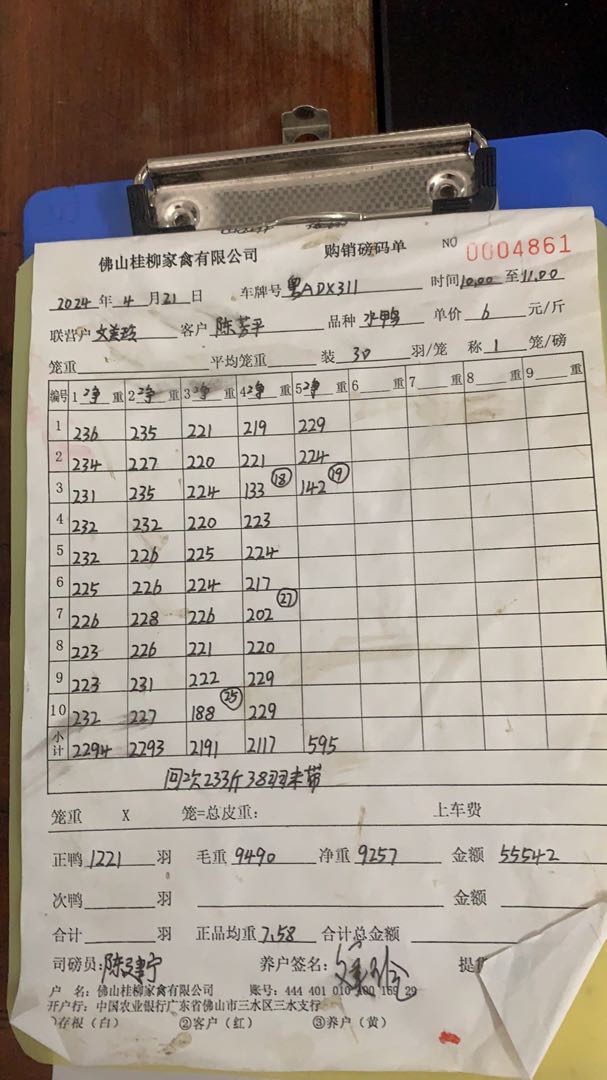 佛山桂柳家禽有限公司 购销磅码单 NO 0004861
2024 年 4 月 21 日 车牌号 粤ADX311 时间10.00 至 11.00
联营户 客户 陈芳平 品种 水鸭 单价 6 元/斤
笼重 平均笼重 装 30 羽/笼 称 1 笼/磅
编号 1 净 重 2 净 重 3 净 重 4 净 重 5 净 重 6 重 7 重 8 重 9 重
1 236 235 221 219 229
2 234 227 220 221 224
3 231 235 224 133 ⑱ 142 ⑲
4 232 232 220 223
5 232 226 225 224
6 225 226 224 217
7 226 228 226 202 ㉗
8 223 226 221 220
9 223 231 222 229
10 232 227 188 ㉕ 229
小计 2294 2293 2191 2117 595
回次233斤38羽未带
笼重 X 笼=总皮重: 上车费
正鸭 1221 羽 毛重 9490 净重 9257 金额 55542
次鸭 羽 金额
合计 羽 正品均重 7.58 合计总金额
司磅员: 陈建宁 养户签名:
户 名: 佛山桂柳家禽有限公司 账号: 444 401 010 400 169 29
开户行: 中国农业银行广东省佛山市三水区三水支行
①存根（白） ②客户（红） ③养户（黄）